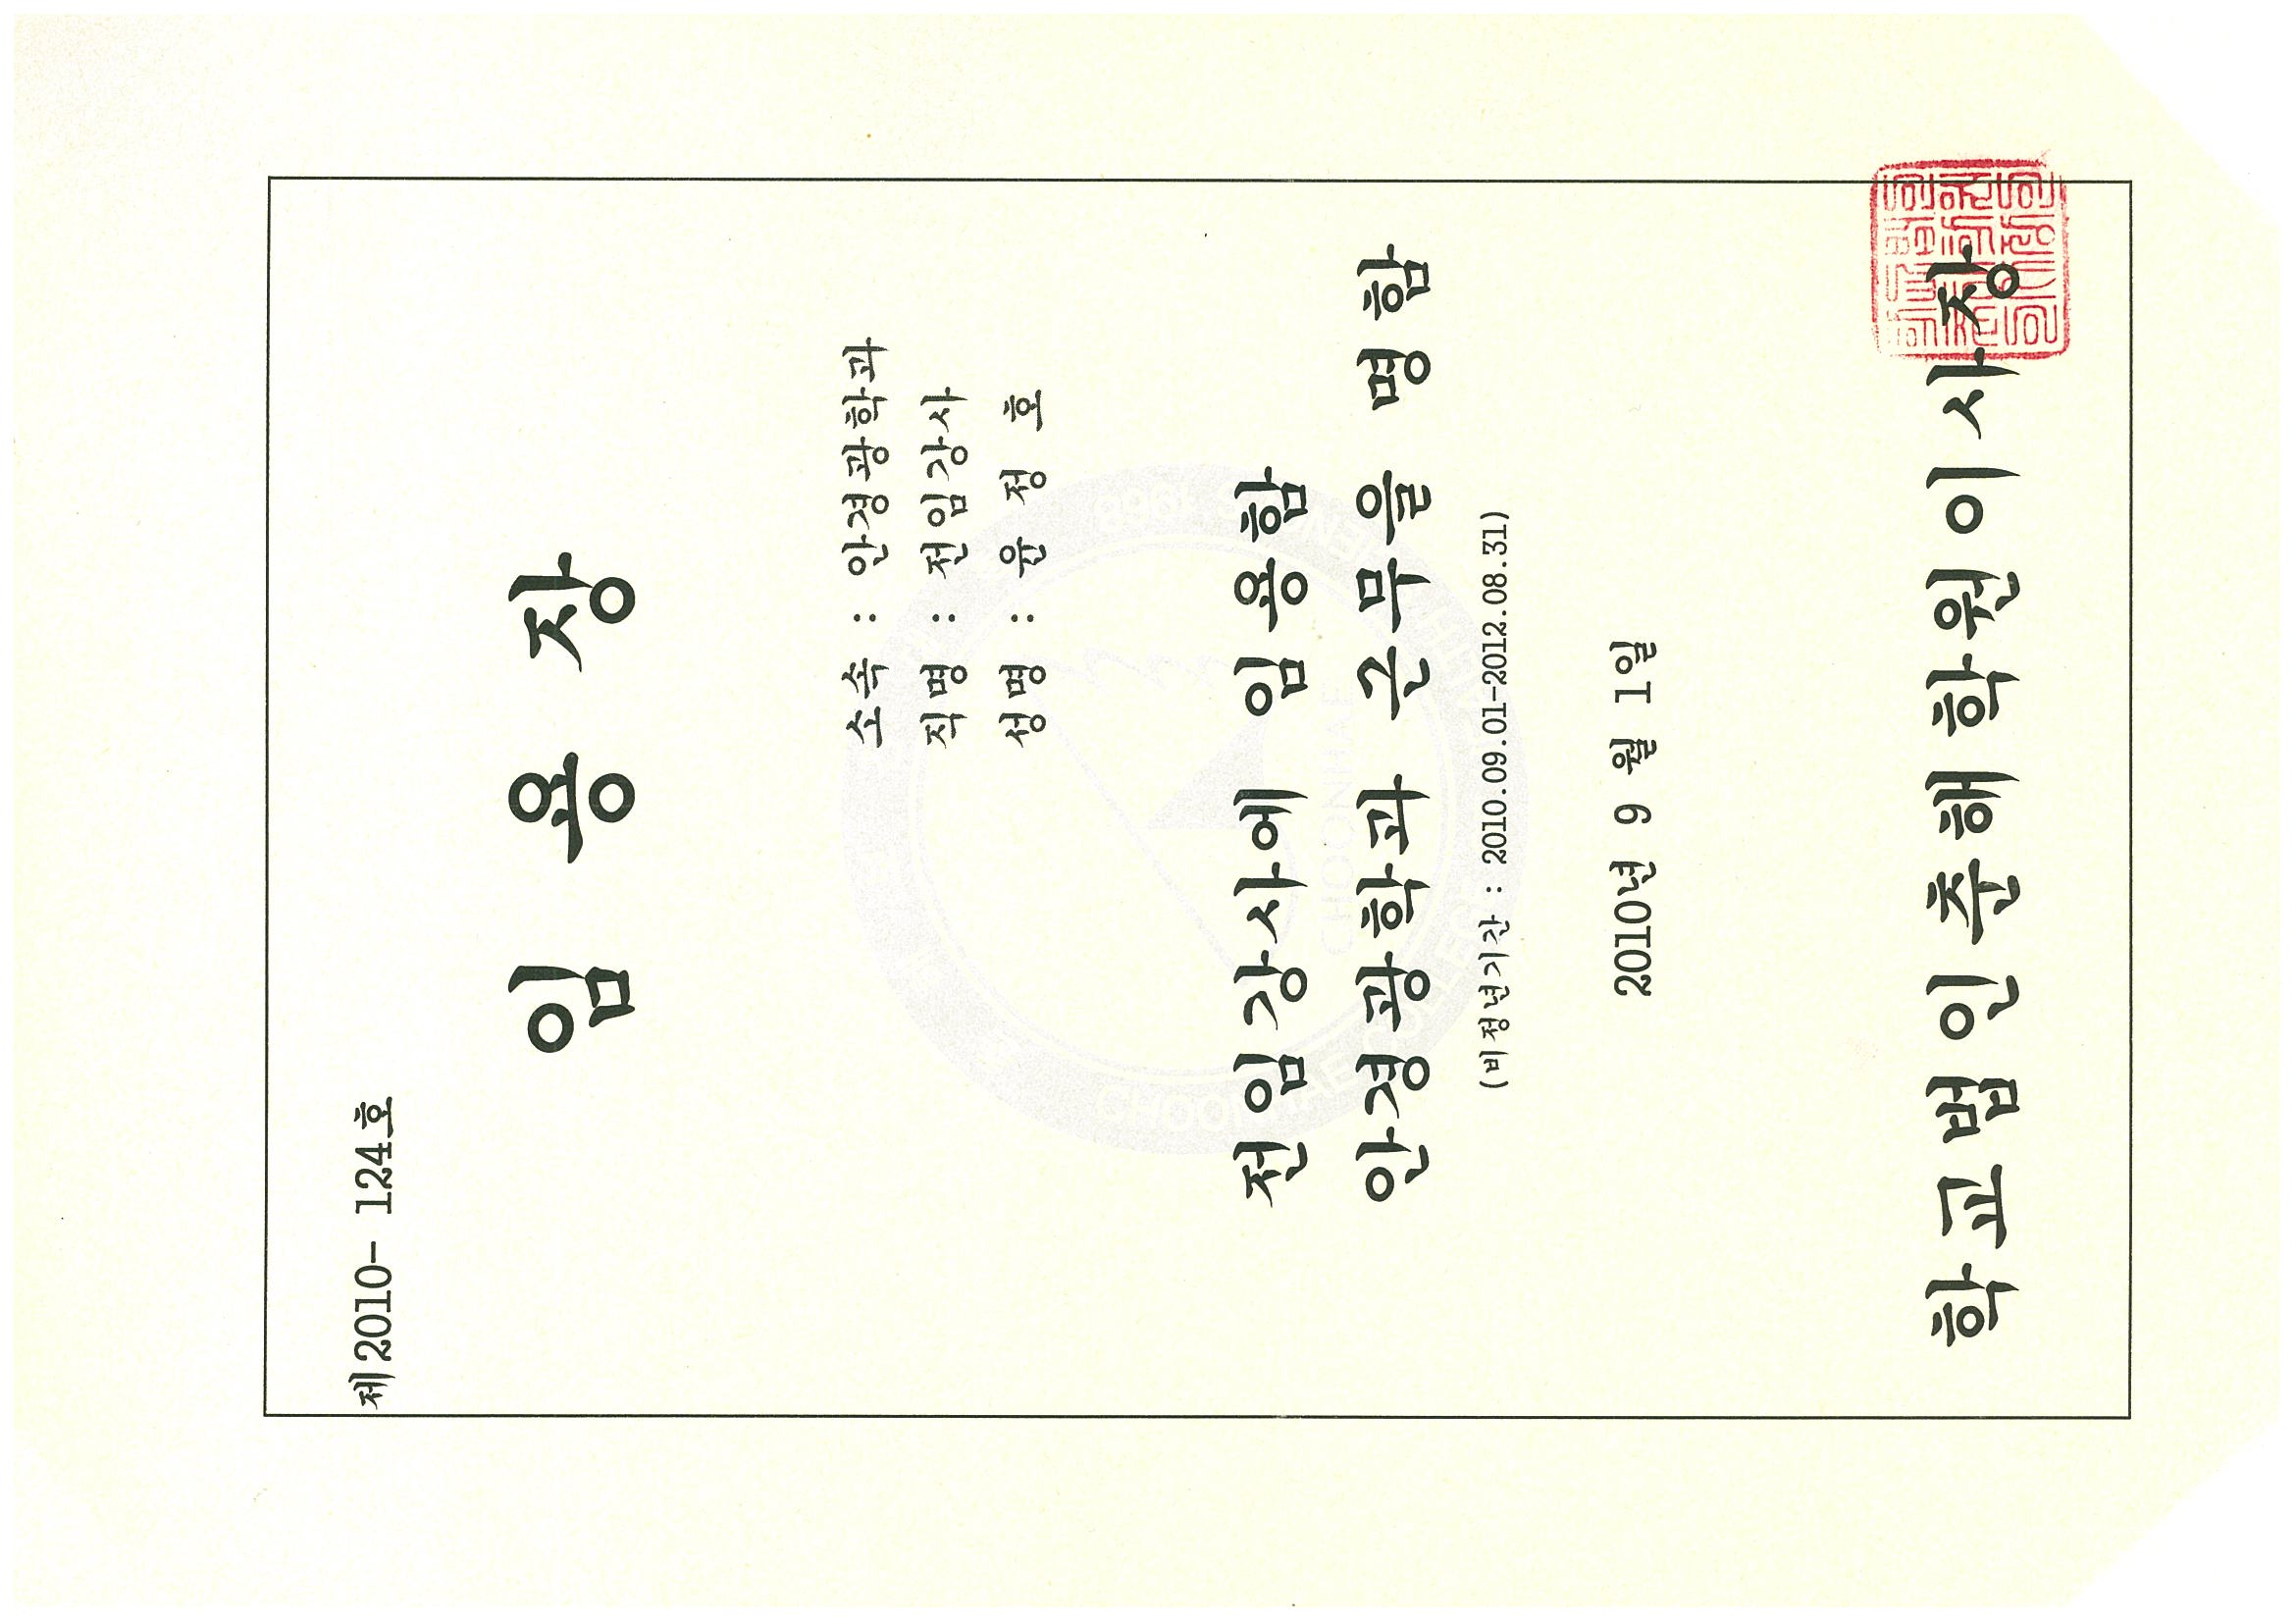 제2010- 124호
임 용 장
소속 : 안경광학과
직명 : 전임강사
성명 : 윤 정 호
전임강사에 임용함
안경광학과 근무을 명함
(비정년기간 : 2010.09.01-2012.08.31)
2010년 9 월 1일
학교법인춘해학원이사장
CHOONHAE